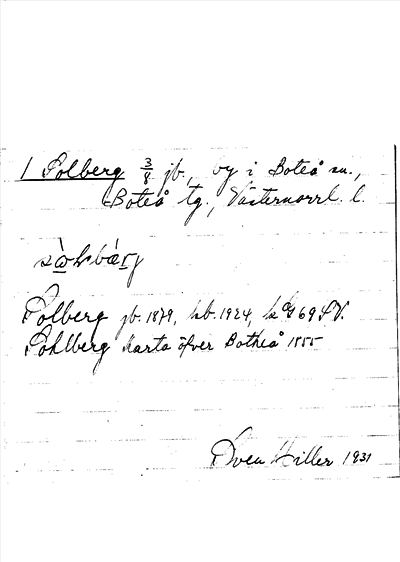 1 Solberg 3/8 jb. by i Boteå sn.,
Boteå tg., Västernorrl. l.
Solberg jb. 1879, kb. 1924, k
Sohlberg Karta öfver Botheå 1855
Sven Hiller 1931